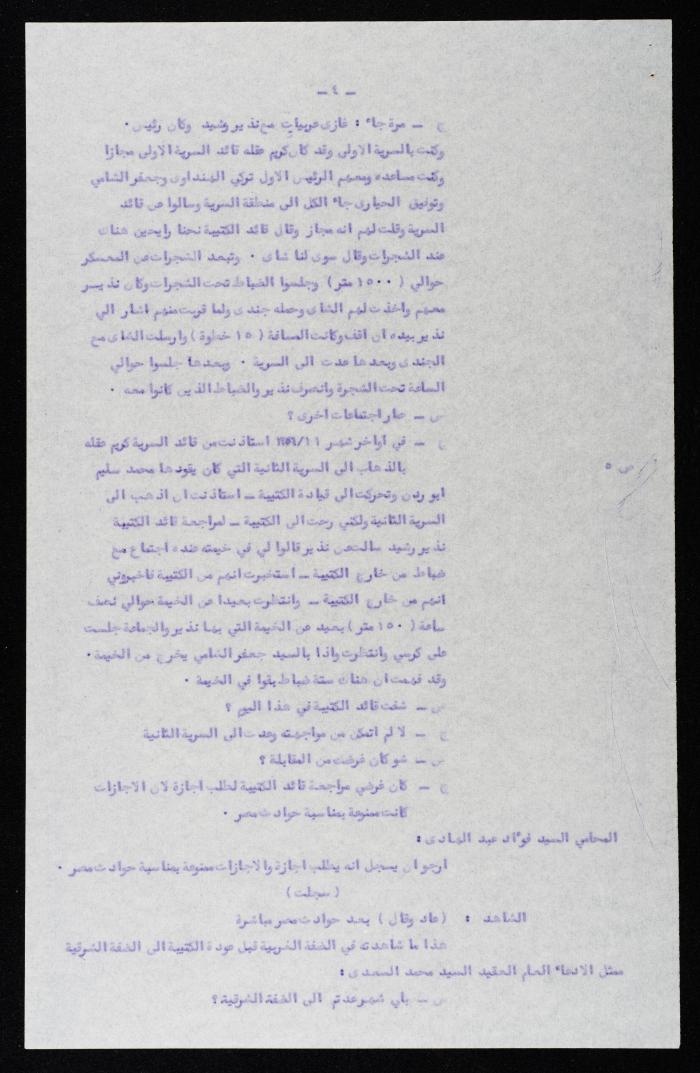 ـ ٤ ـ
ج ـ مرة جاء : غازي عربيات مع نذير رشيد وكان رئيس .
وكنت بالسرية الاولى وقد كان كريم عقله قائد السرية الاولى مجازا
وكنت مساعده ومعهم الرئيس الاول تركي الهنداوي وجعفر الشامي
وتوفيق الحياري جاء الكل الى منطقة السرية وسالوا عن قائد
السرية وقلت لهم انه مجاز وقال قائد الكتيبة نحنا رايحين هناك
عند الشجرات وقال سوى لنا شاي . وتبعد الشجرات عن المعسكر
حوالي ( ١٥٠٠ متر ) وجلسوا الضباط تحت الشجرات وكان نذيـر
معهم واخذت لهم الشاي وحمله جندي ولما قربت منهم اشار الي
نذير بيده ان اقف وكانت المسافة ( ١٥ خطوة ) وارسلت الشاي مع
الجندي وبعدها عدت الى السرية . وبعدها جلسوا حوالي
الساعة تحت الشجرة وانصرف نذير والضباط الذين كانوا معه .
س ـ صار اجتماعات اخرى ؟
ج ـ في اواخر شهر ١١/١٩٥٦ استاذنت من قائد السرية كريم عقله
بالذهاب الى السرية الثانية التي كان يقودها محمد سليم
ص ٥
ابو ردن وتحركت الى قيادة الكتيبة ـ استاذنت ان اذهب الى
السرية الثانية ولكني رحت الى الكتيبة ـ لمراجعة قائد الكتيبة
نذير رشيد سالت عن نذير قالوا لي في خيمته عنده اجتماع مع
ضباط من خارج الكتيبة ـ استخبرت انهم من الكتيبة فاخبروني
انهم من خارج الكتيبة ـ وانتظرت بعيدا عن الخيمة حوالي نصف
ساعة ( ١٥٠ متر ) بعيد عن الخيمة التي بها نذير والجماعة جلست
على كرسي وانتظرت واذا بالسيد جعفر الشامي يخرج من الخيمة .
وقد فهمت ان هناك ستة ضباط بقوا في الخيمة .
س ـ شفت قائد الكتيبة في هذا اليوم ؟
ج ـ لا لم اتمكن من مواجهته وعدت الى السرية الثانية
س ـ شو كان غرضك من المقابلة ؟
ج ـ كان غرضي مراجعة قائد الكتيبة لطلب اجازة لان الاجازات
كانت ممنوعة بمناسبة حوادث مصر .
المحامي السيد فوءاد عبد الهادي :
ارجو ان يسجل انه يطلب اجازة والاجازات ممنوعة بمناسبة حوادث مصر .
( سجلت )
الشاهد : ( عاد وقال ) بعد حوادث مصر مباشرة
هذا ما شاهدته في الضفة الغربية قبل عودة الكتيبة الى الضفة الشرقية
ممثل الادعاء العام العقيد السيد محمد السعدي :
س ـ باي شهر عدتم الى الضفة الشرقية ؟